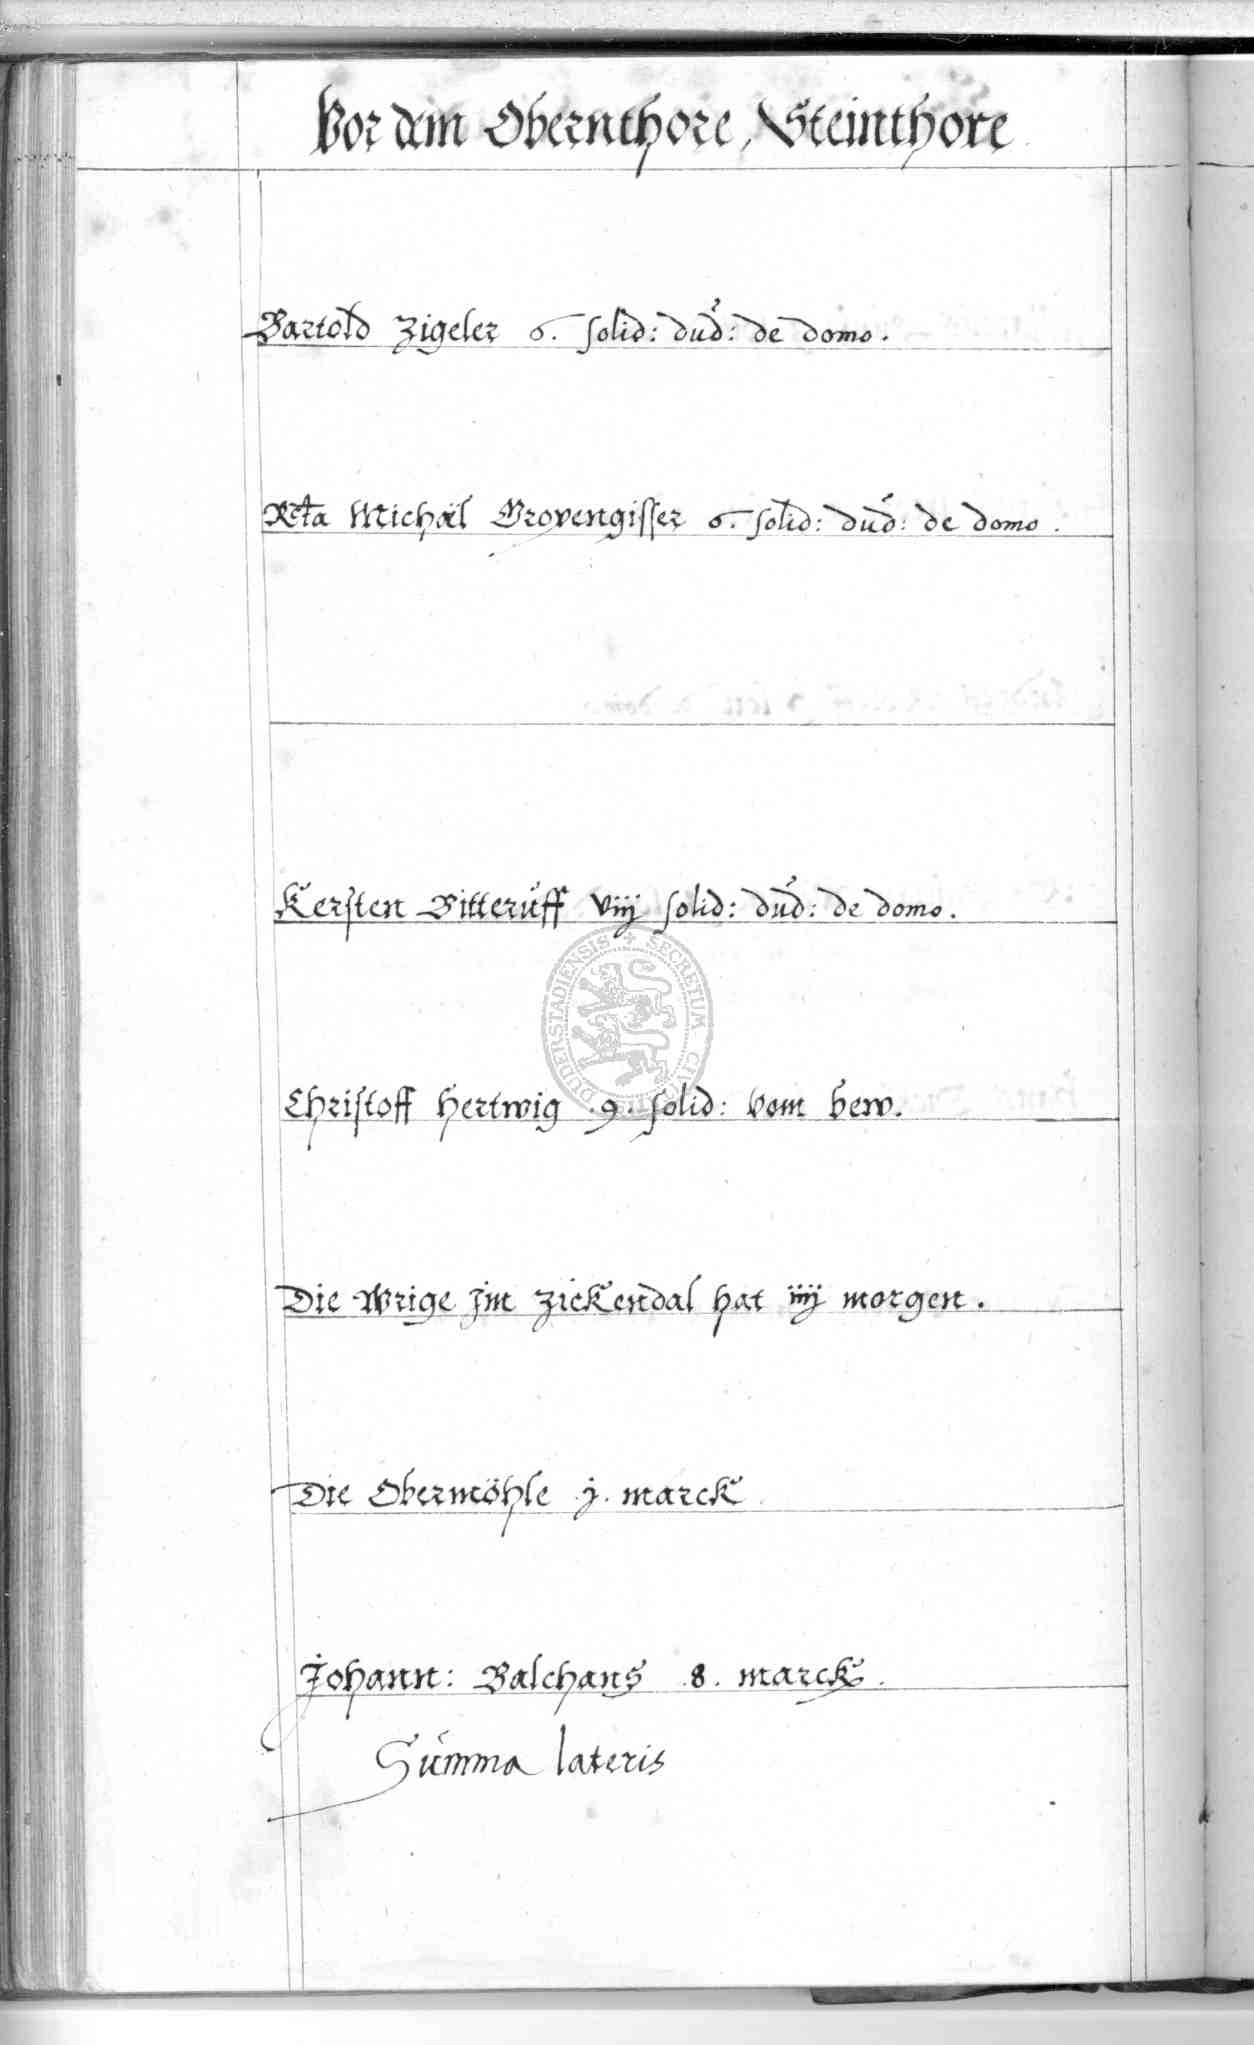 Vor dem Obernthore, Steinthore
Bartold Zigeler 6. solid: dud: de domo.
Rcta Michäl Gropengisser 6. solid: dud: de domo.
Kersten Bitteruff viij solid: dud: de domo.
DUDERSTADIENSIS + SECRETUM
Christoff Hertwig .9. solid: vom hew.
Die Wrige Jm Zickendal hat iiij morgen.
Die Obermöhle .j. marck
Johann: Balchans 8. marck.
Summa lateris